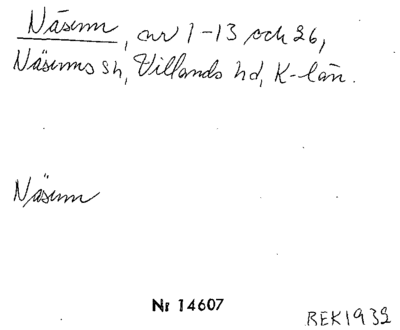 Näsum, nr 1-13 och 26,
Näsums sn, Villands hd, K-län.
Näsum
Nr 14607
REK1932